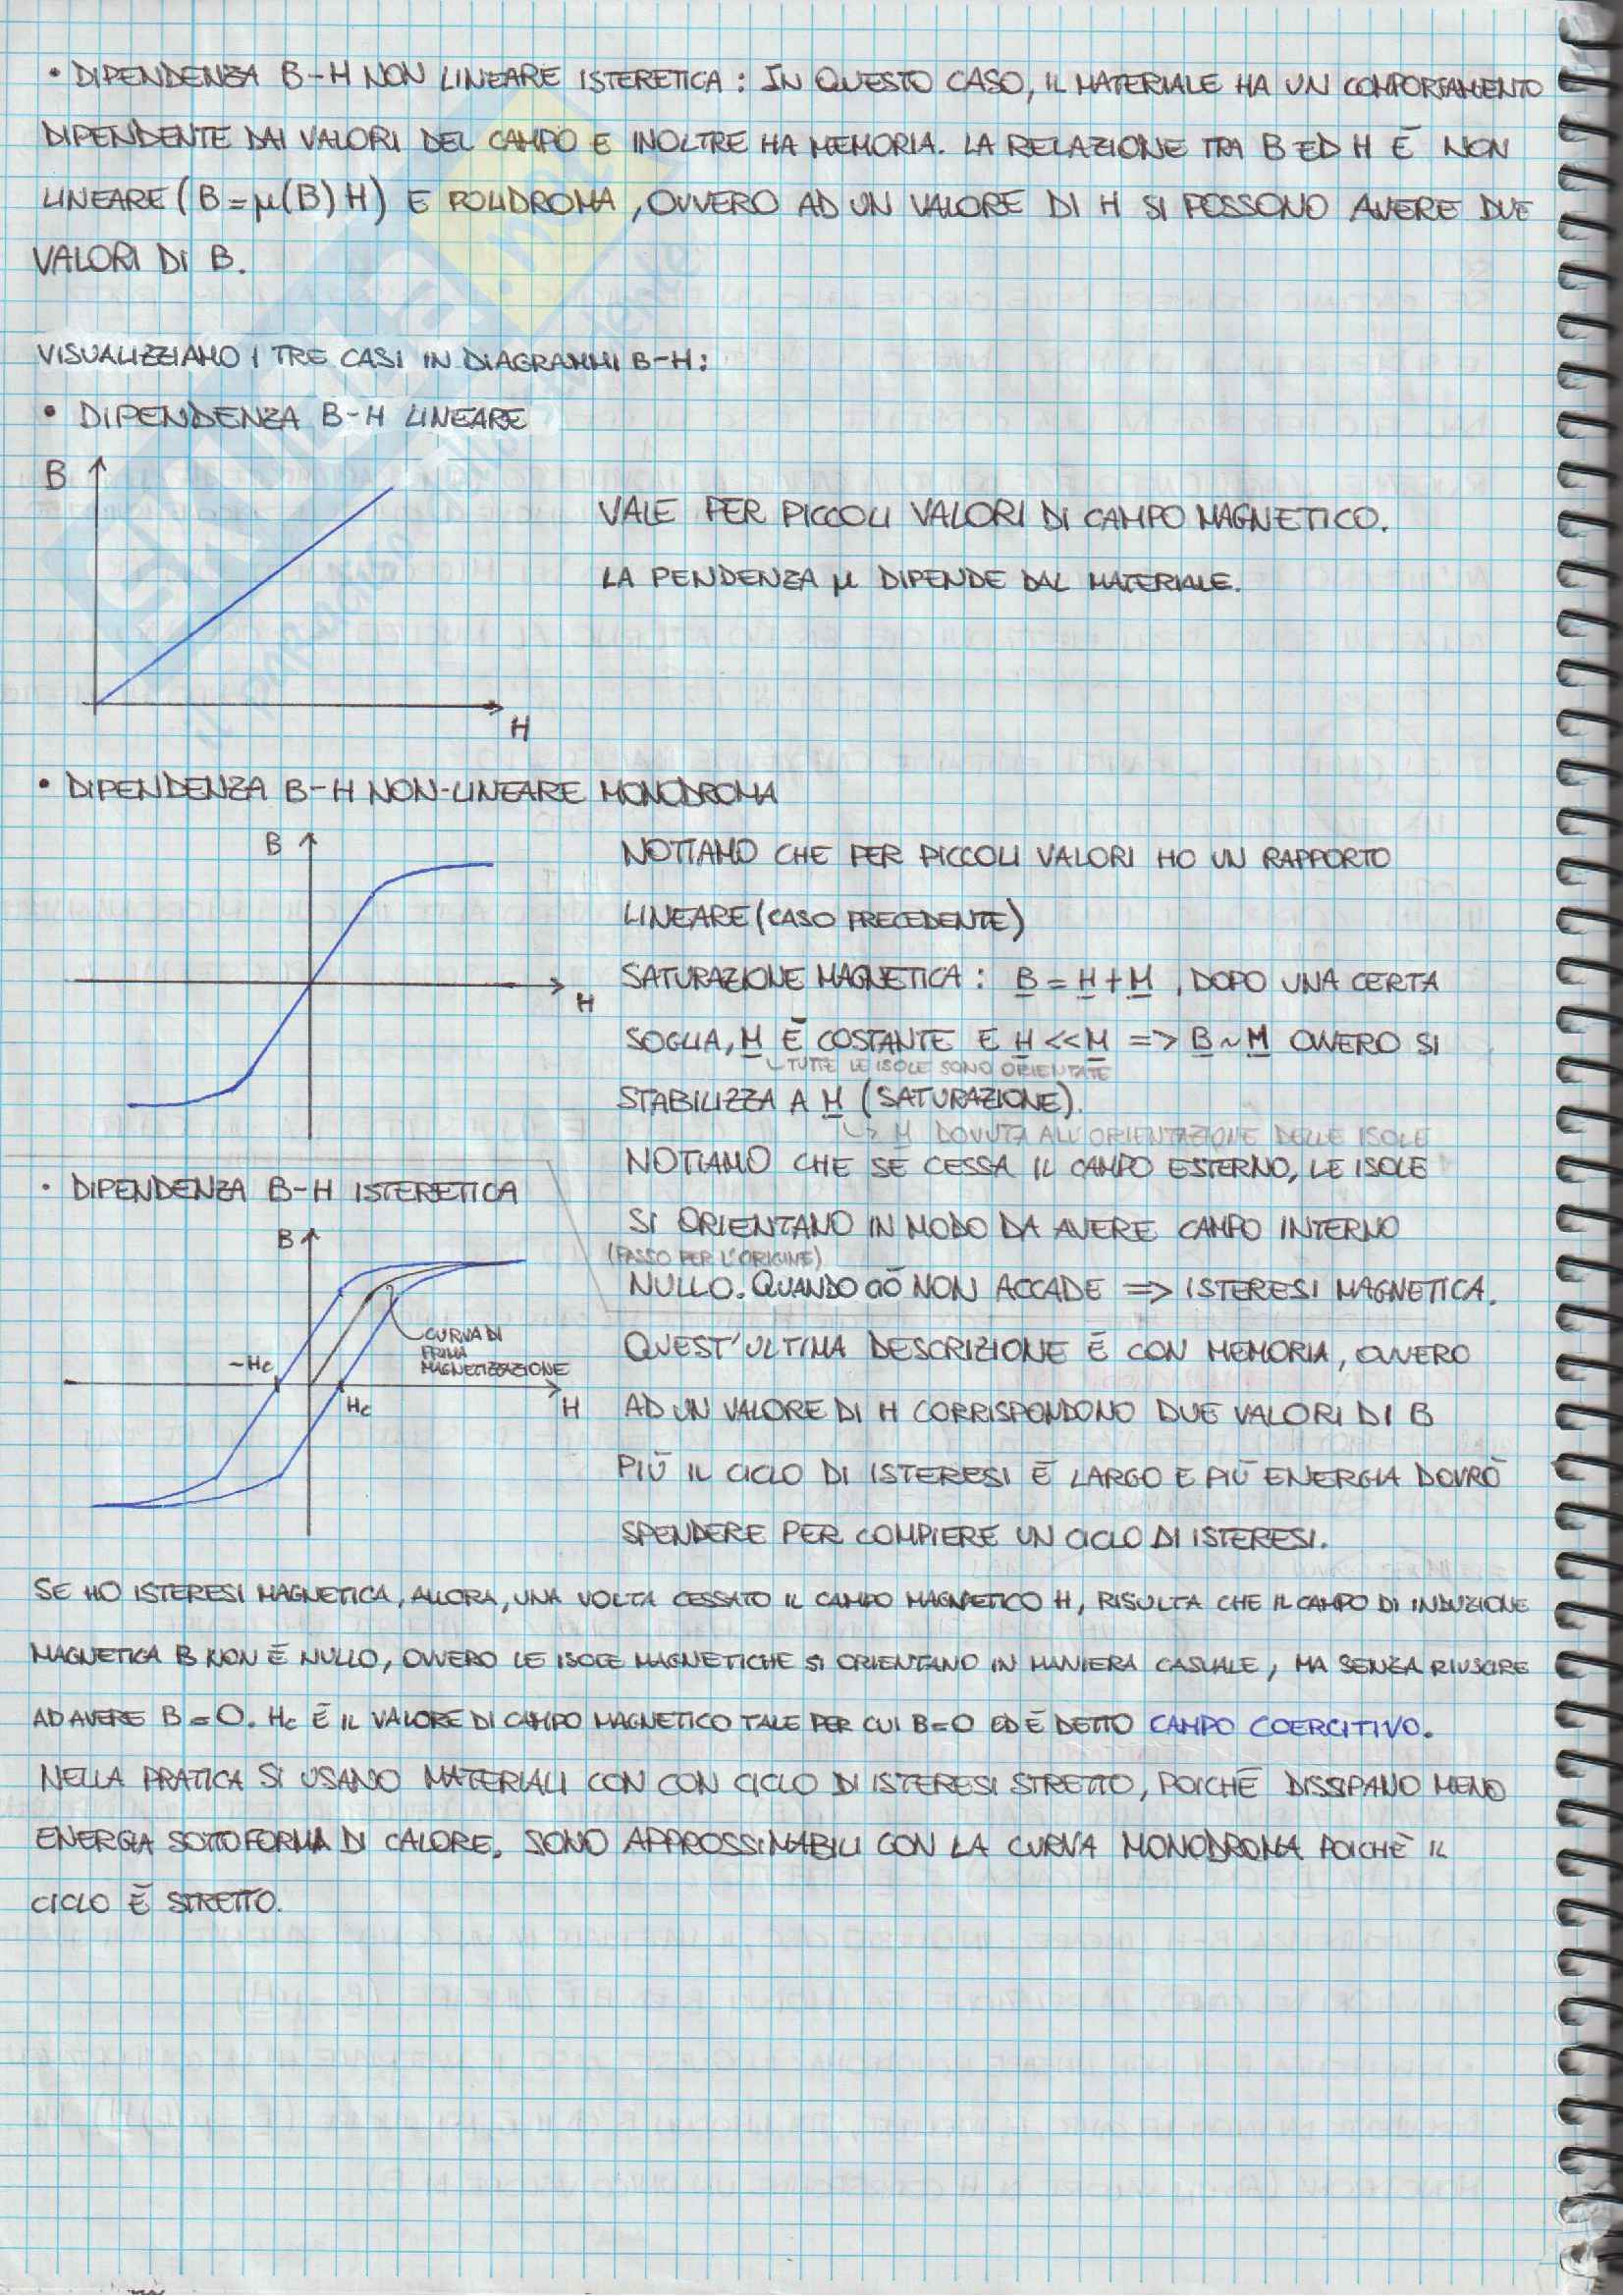 • DIPENDENZA B-H NON LINEARE ISTERETICA: IN QUESTO CASO, IL MATERIALE HA UN COMPORTAMENTO
DIPENDENTE DAI VALORI DEL CAMPO E INOLTRE HA MEMORIA. LA RELAZIONE TRA B ED H È NON
LINEARE (B=μ(B)H) E POLIDROMA, OVVERO AD UN VALORE DI H SI POSSONO AVERE DUE
VALORI DI B.
VISUALIZZIAMO I TRE CASI IN DIAGRAMMI B-H:
• DIPENDENZA B-H LINEARE
B
H
VALE PER PICCOLI VALORI DI CAMPO MAGNETICO.
LA PENDENZA μ DIPENDE DAL MATERIALE.
• DIPENDENZA B-H NON-LINEARE MONODROMA
B
H
NOTIAMO CHE PER PICCOLI VALORI HO UN RAPPORTO
LINEARE (CASO PRECEDENTE)
SATURAZIONE MAGNETICA: B = H + M, DOPO UNA CERTA
SOGLIA, M È COSTANTE E H << M => B ~ M OVVERO SI
TUTTE LE ISOLE SONO ORIENTATE
STABILIZZA A M (SATURAZIONE).
↳ M DOVUTA ALL'ORIENTAZIONE DELLE ISOLE
NOTIAMO CHE SE CESSA IL CAMPO ESTERNO, LE ISOLE
SI ORIENTANO IN MODO DA AVERE CAMPO INTERNO
(PASSO PER L'ORIGINE)
NULLO. QUANDO CIÒ NON ACCADE => ISTERESI MAGNETICA.
• DIPENDENZA B-H ISTERETICA
B
CURVA DI
PRIMA
MAGNETIZZAZIONE
-Hc
Hc
H
QUEST'ULTIMA DESCRIZIONE È CON MEMORIA, OVVERO
AD UN VALORE DI H CORRISPONDONO DUE VALORI DI B
PIÙ IL CICLO DI ISTERESI È LARGO E PIÙ ENERGIA DOVRÒ
SPENDERE PER COMPIERE UN CICLO DI ISTERESI.
SE HO ISTERESI MAGNETICA, ALLORA, UNA VOLTA CESSATO IL CAMPO MAGNETICO H, RISULTA CHE IL CAMPO DI INDUZIONE
MAGNETICA B NON È NULLO, OVVERO LE ISOLE MAGNETICHE SI ORIENTANO IN MANIERA CASUALE, MA SENZA RIUSCIRE
AD AVERE B=0. Hc È IL VALORE DI CAMPO MAGNETICO TALE PER CUI B=0 ED È DETTO CAMPO COERCITIVO.
NELLA PRATICA SI USANO MATERIALI CON CON CICLO DI ISTERESI STRETTO, POICHÈ DISSIPANO MENO
ENERGIA SOTTOFORMA DI CALORE. SONO APPROSSIMABILI CON LA CURVA MONODROMA POICHÈ IL
CICLO È STRETTO.